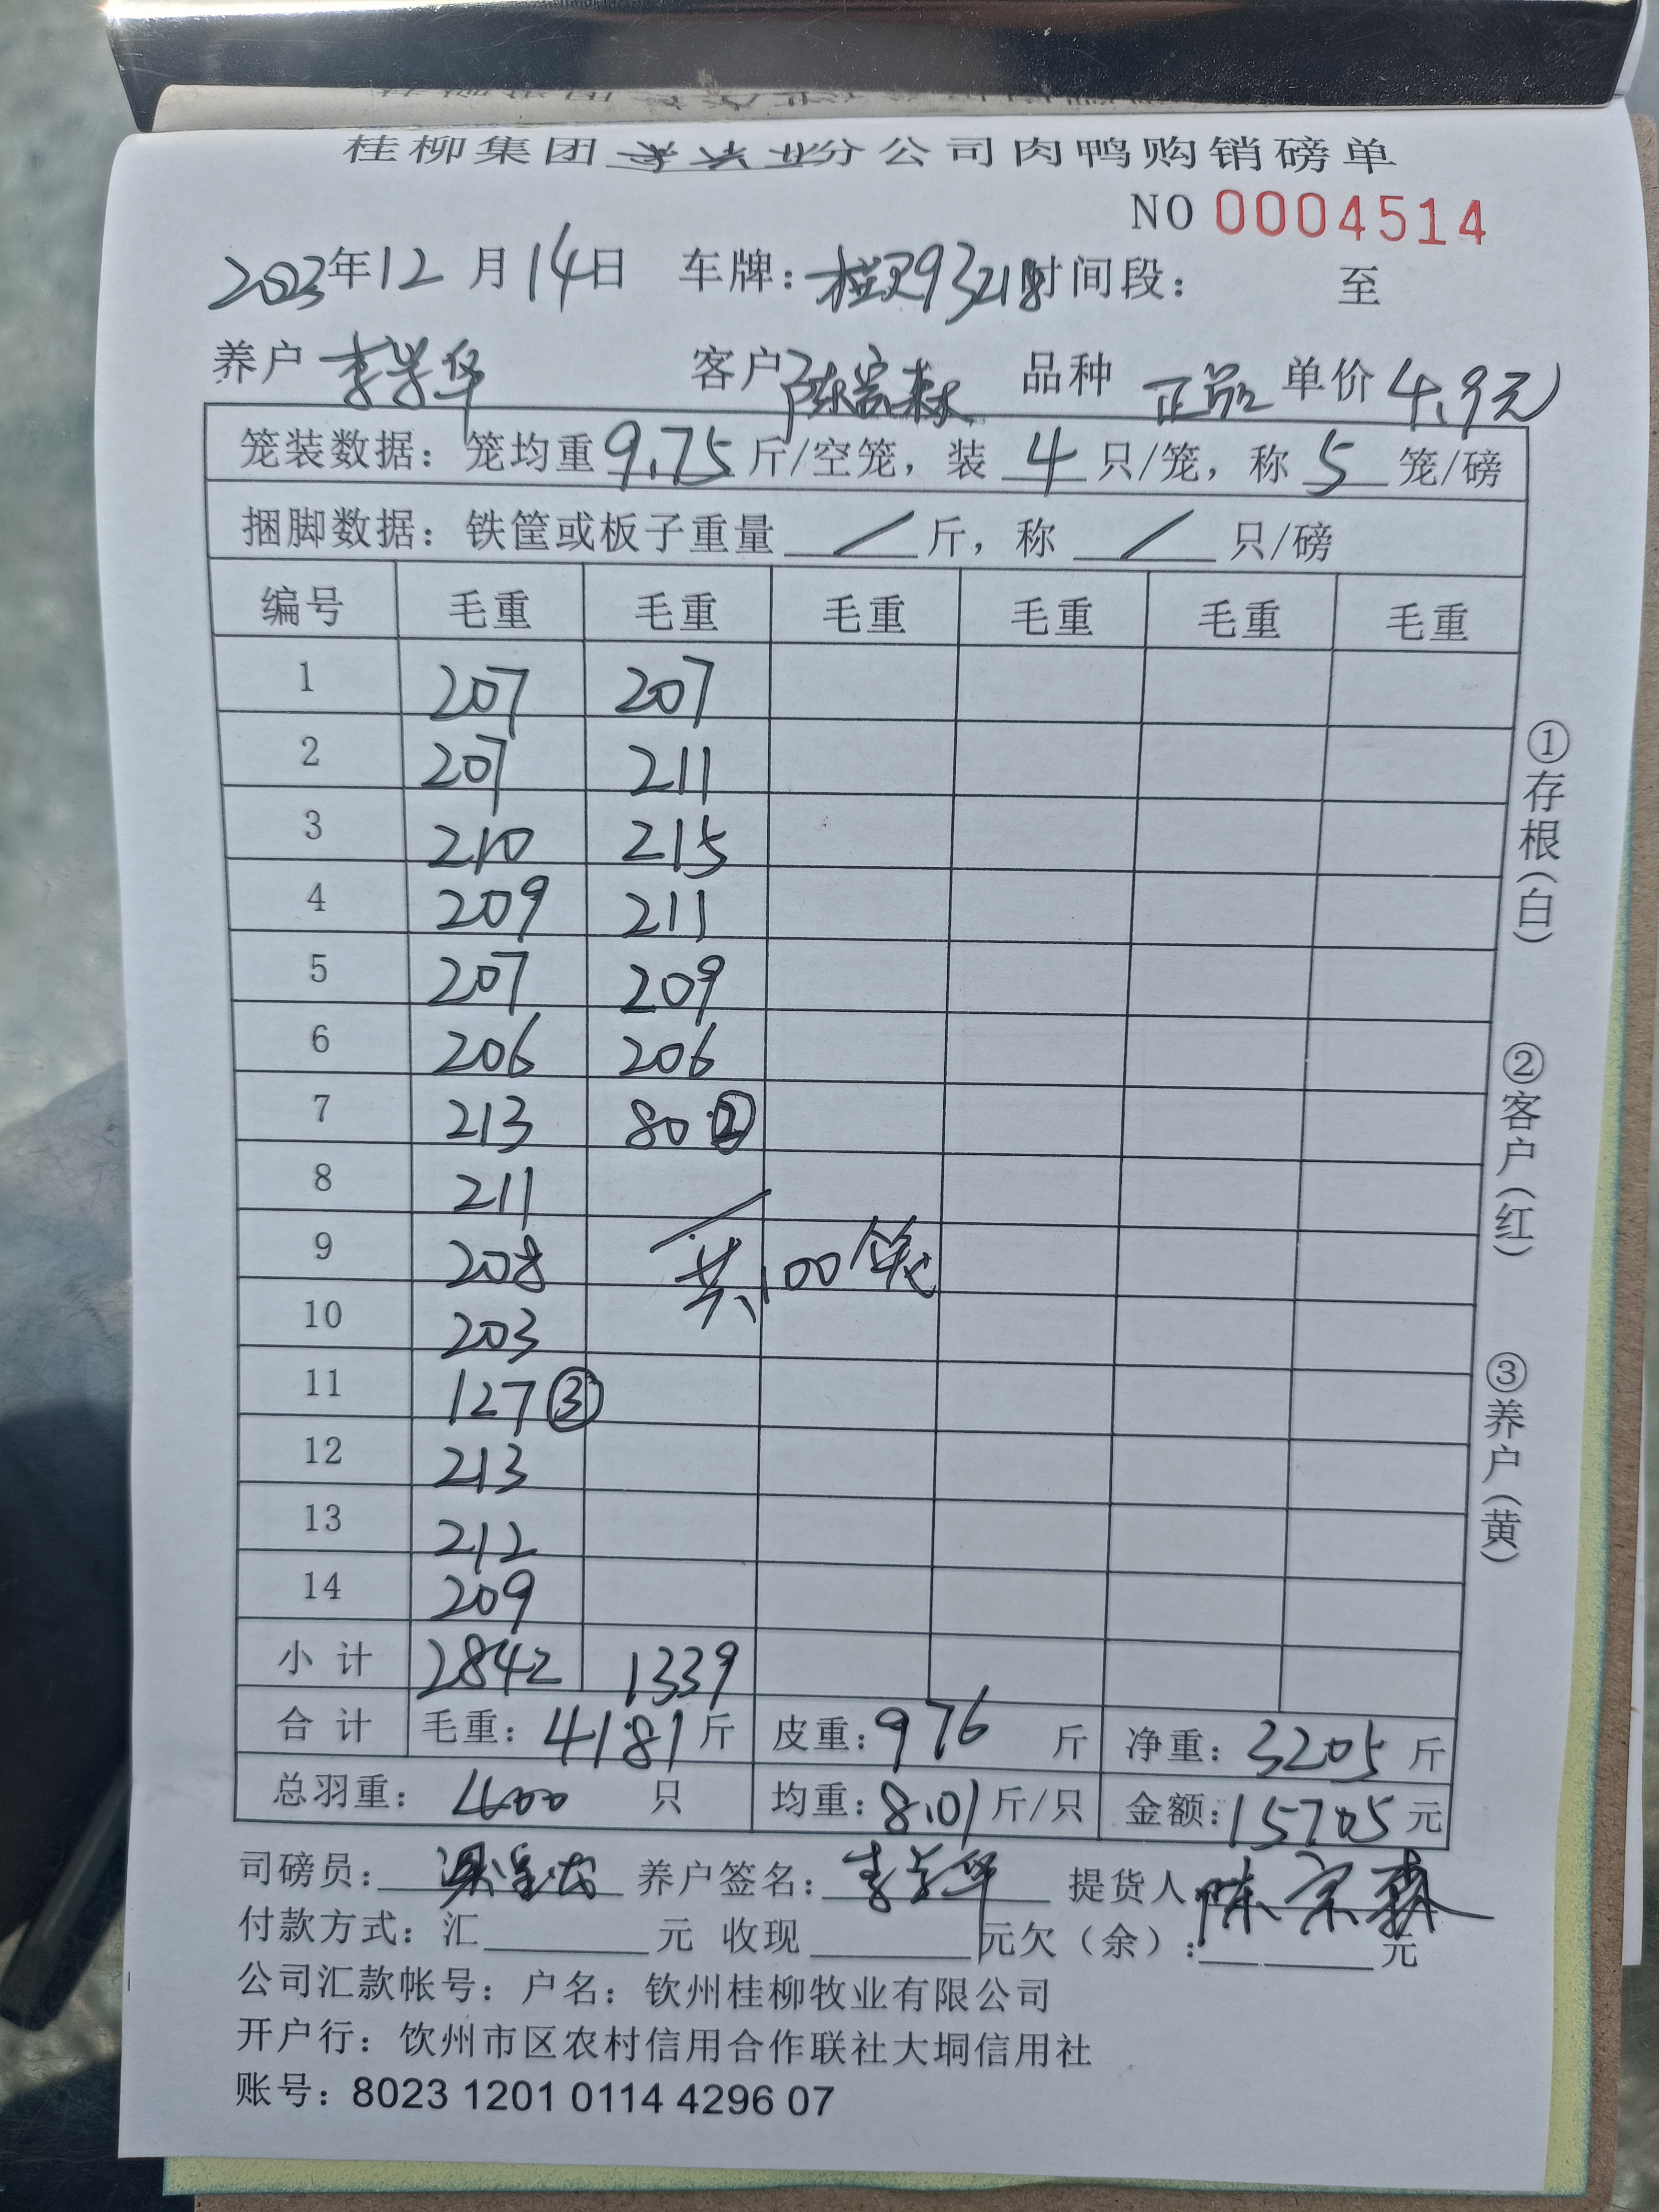 桂柳集团 分公司肉鸭购销磅单
NO 0004514
2023年12月14日 车牌: 93218 时间段: 至
养户 李学华 客户 陈宗森 品种 正品 单价 4.9元
笼装数据: 笼均重 9.75 斤/空笼, 装 4 只/笼, 称 5 笼/磅
捆脚数据: 铁筐或板子重量 / 斤, 称 / 只/磅
编号 毛重 毛重 毛重 毛重 毛重 毛重
1 207 207
2 207 211
3 210 215
4 209 211
5 207 209
6 206 206
7 213 80 ②
8 211
9 208 共100笼
10 203
11 127 ③
12 213
13 212
14 209
小计 2842 1339
合计 毛重: 4181 斤 皮重: 976 斤 净重: 3205 斤
总羽重: 400 只 均重: 8.01 斤/只 金额: 15705 元
司磅员: 养户签名: 李学华 提货人 陈宗森
付款方式: 汇 元 收现 元欠(余): 元
公司汇款帐号: 户名: 钦州桂柳牧业有限公司
开户行: 饮州市区农村信用合作联社大垌信用社
账号: 8023 1201 0114 4296 07
①存根(白)
②客户(红)
③养户(黄)